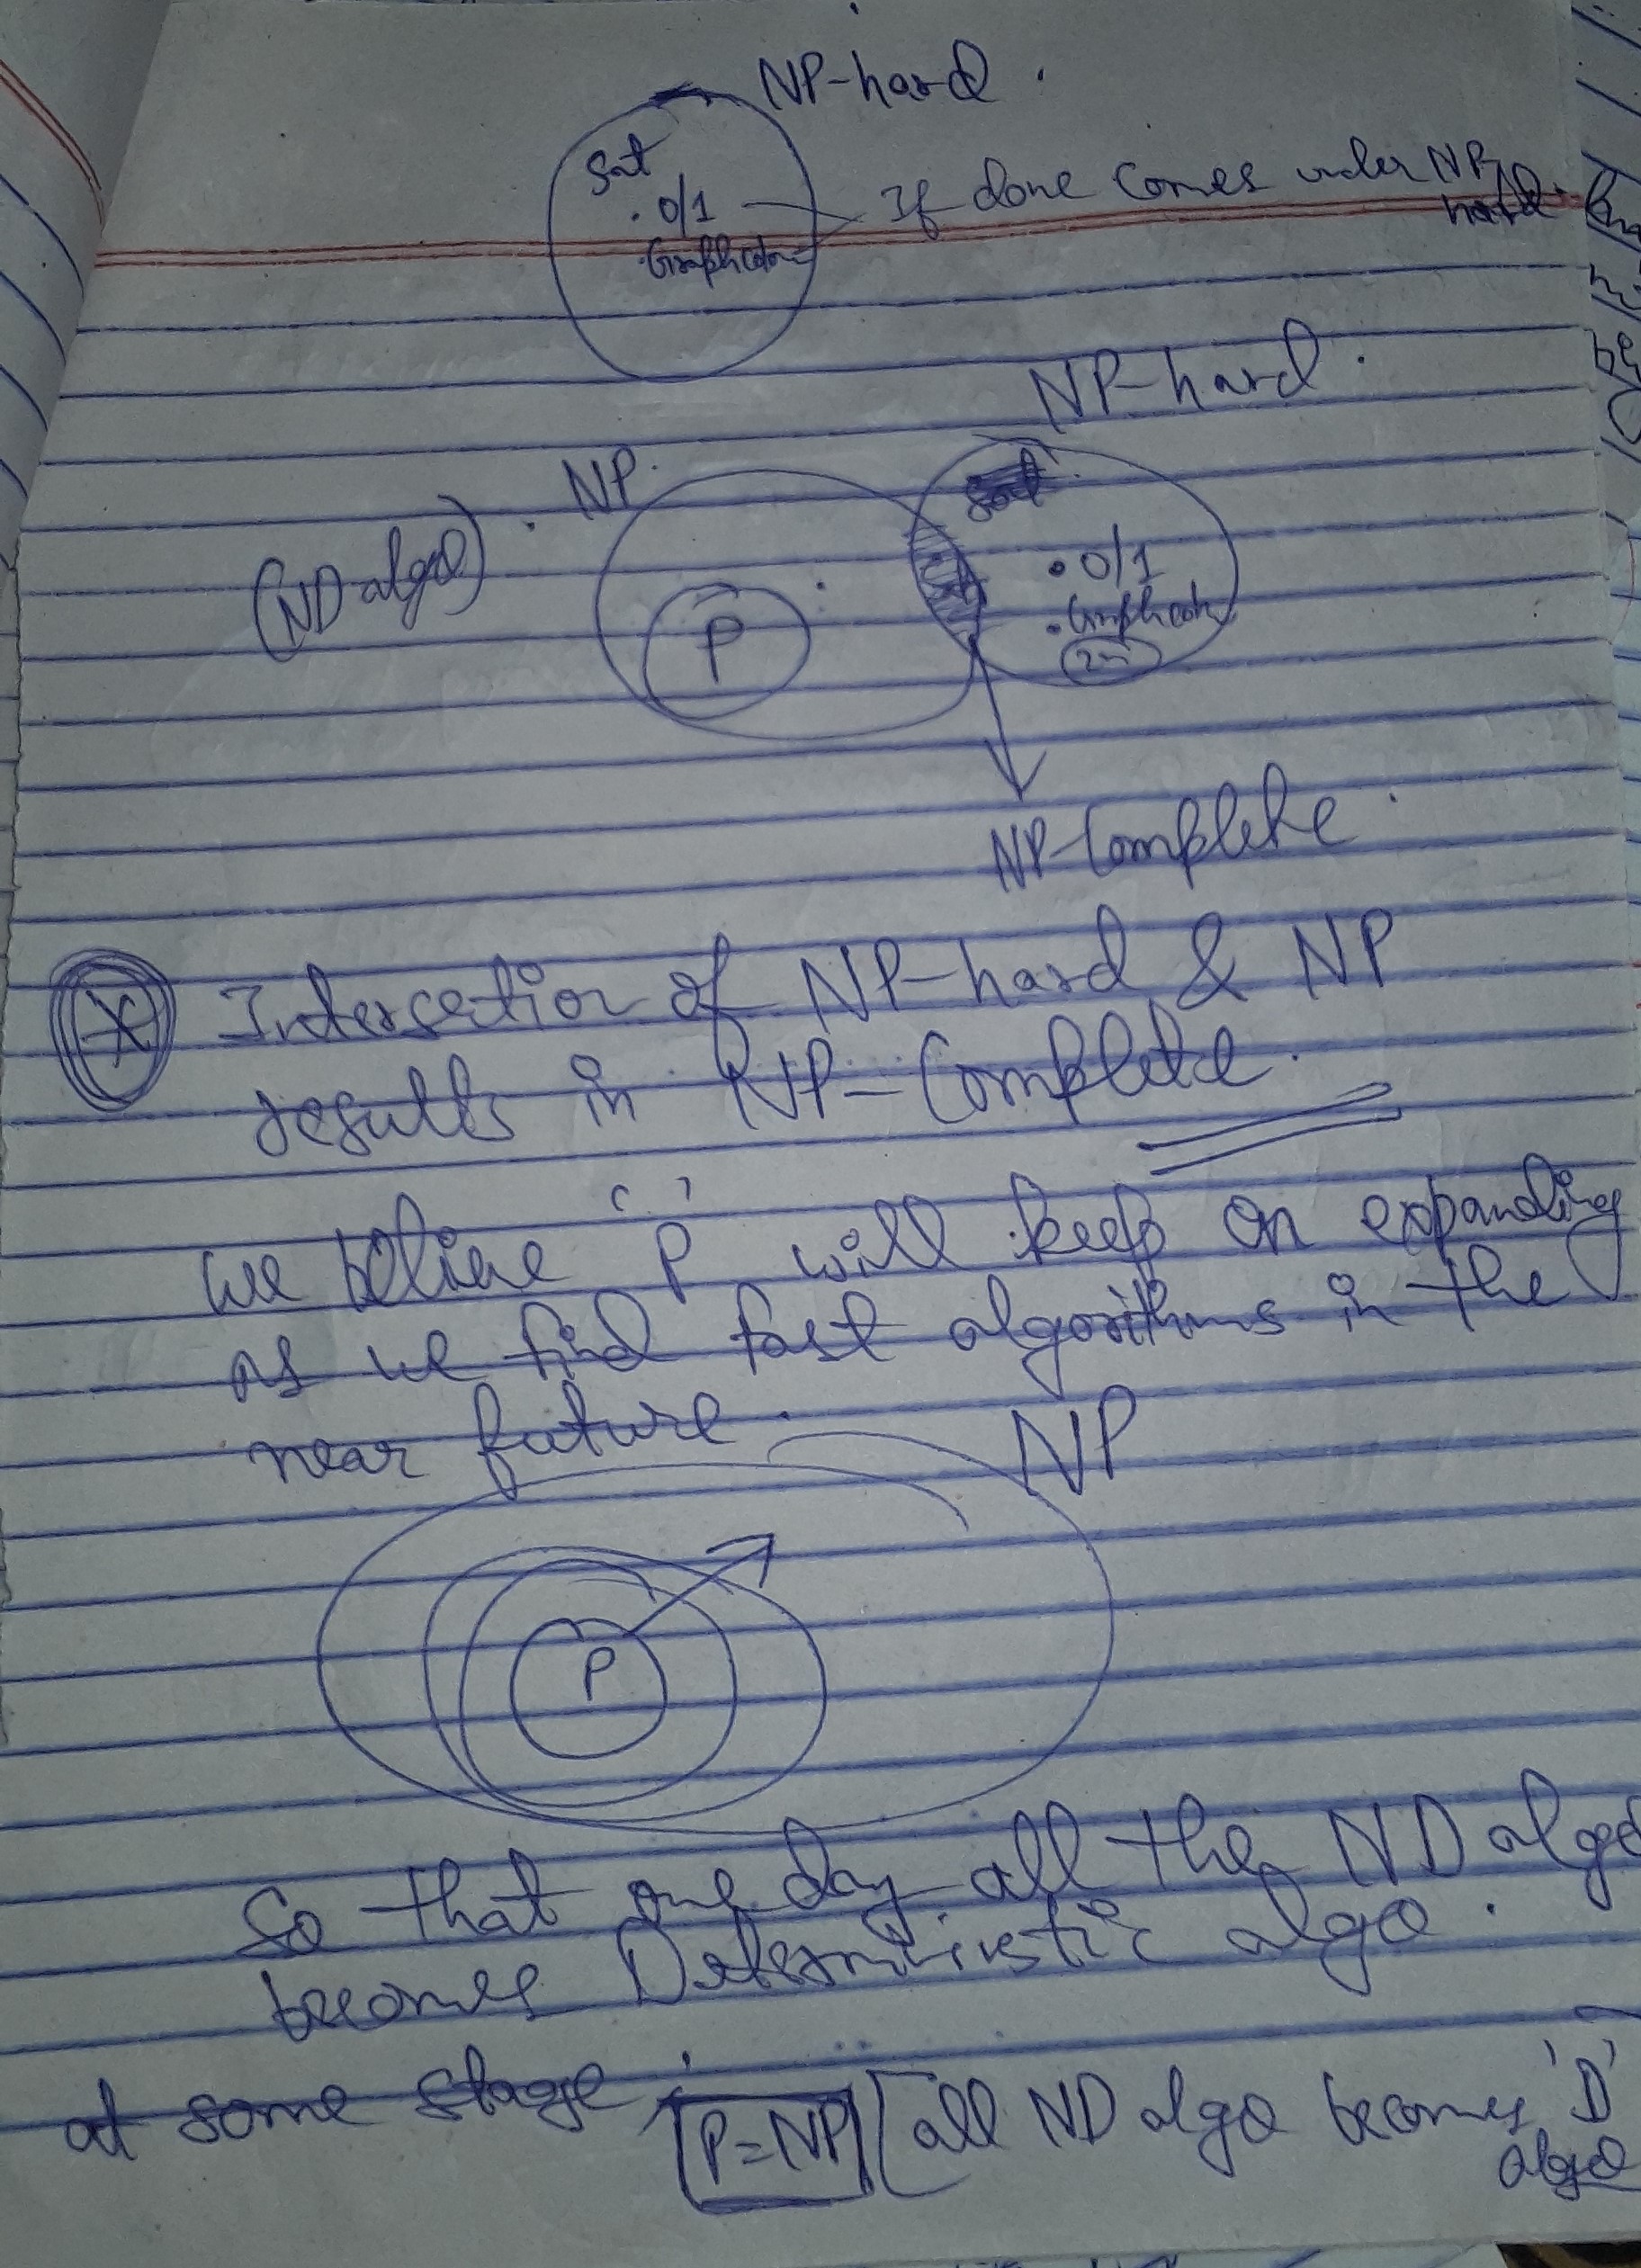 NP-hard.
Sat
. 0/1
If done comes under NP
hard.
. Graph
NP-hard.
NP.
(ND algo)
. 0/1
P
NP-Complete.
Intersection of NP-hard & NP
results in NP-Complete.
we believe 'P' will keep on expanding
as we find fast algorithms in the
near future.
NP
P
So that one day all the ND algo
becomes Deterministic algo.
at some stage
P=NP [all ND algo becomes 'D'
algo